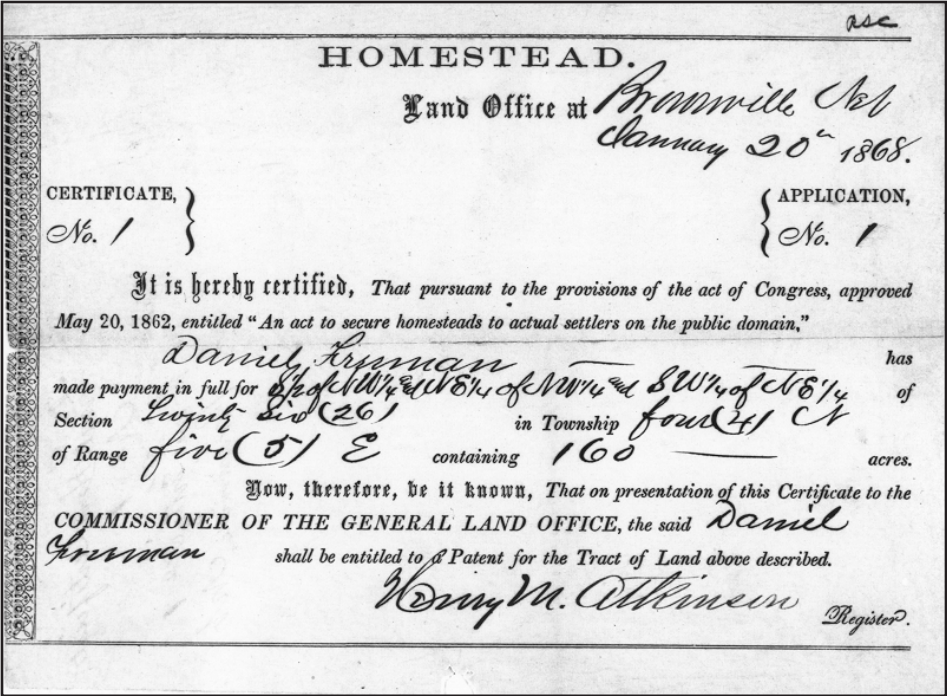 asc
HOMESTEAD.
Land Office at Brownville Neb
January 20th 1868.
CERTIFICATE, APPLICATION,
No. 1 No. 1
It is hereby certified, That pursuant to the provisions of the act of Congress, approved
May 20, 1862, entitled "An act to secure homesteads to actual settlers on the public domain,"
Daniel Freeman has
made payment in full for S½ of NW¼ and NE¼ of NW¼ and SW¼ of NE¼ of
Section Twenty Six (26) in Township four (4) N
of Range five (5) E containing 160 acres.
Now, therefore, be it known, That on presentation of this Certificate to the
COMMISSIONER OF THE GENERAL LAND OFFICE, the said Daniel
Freeman shall be entitled to a Patent for the Tract of Land above described.
Henry M. Atkinson
Register.